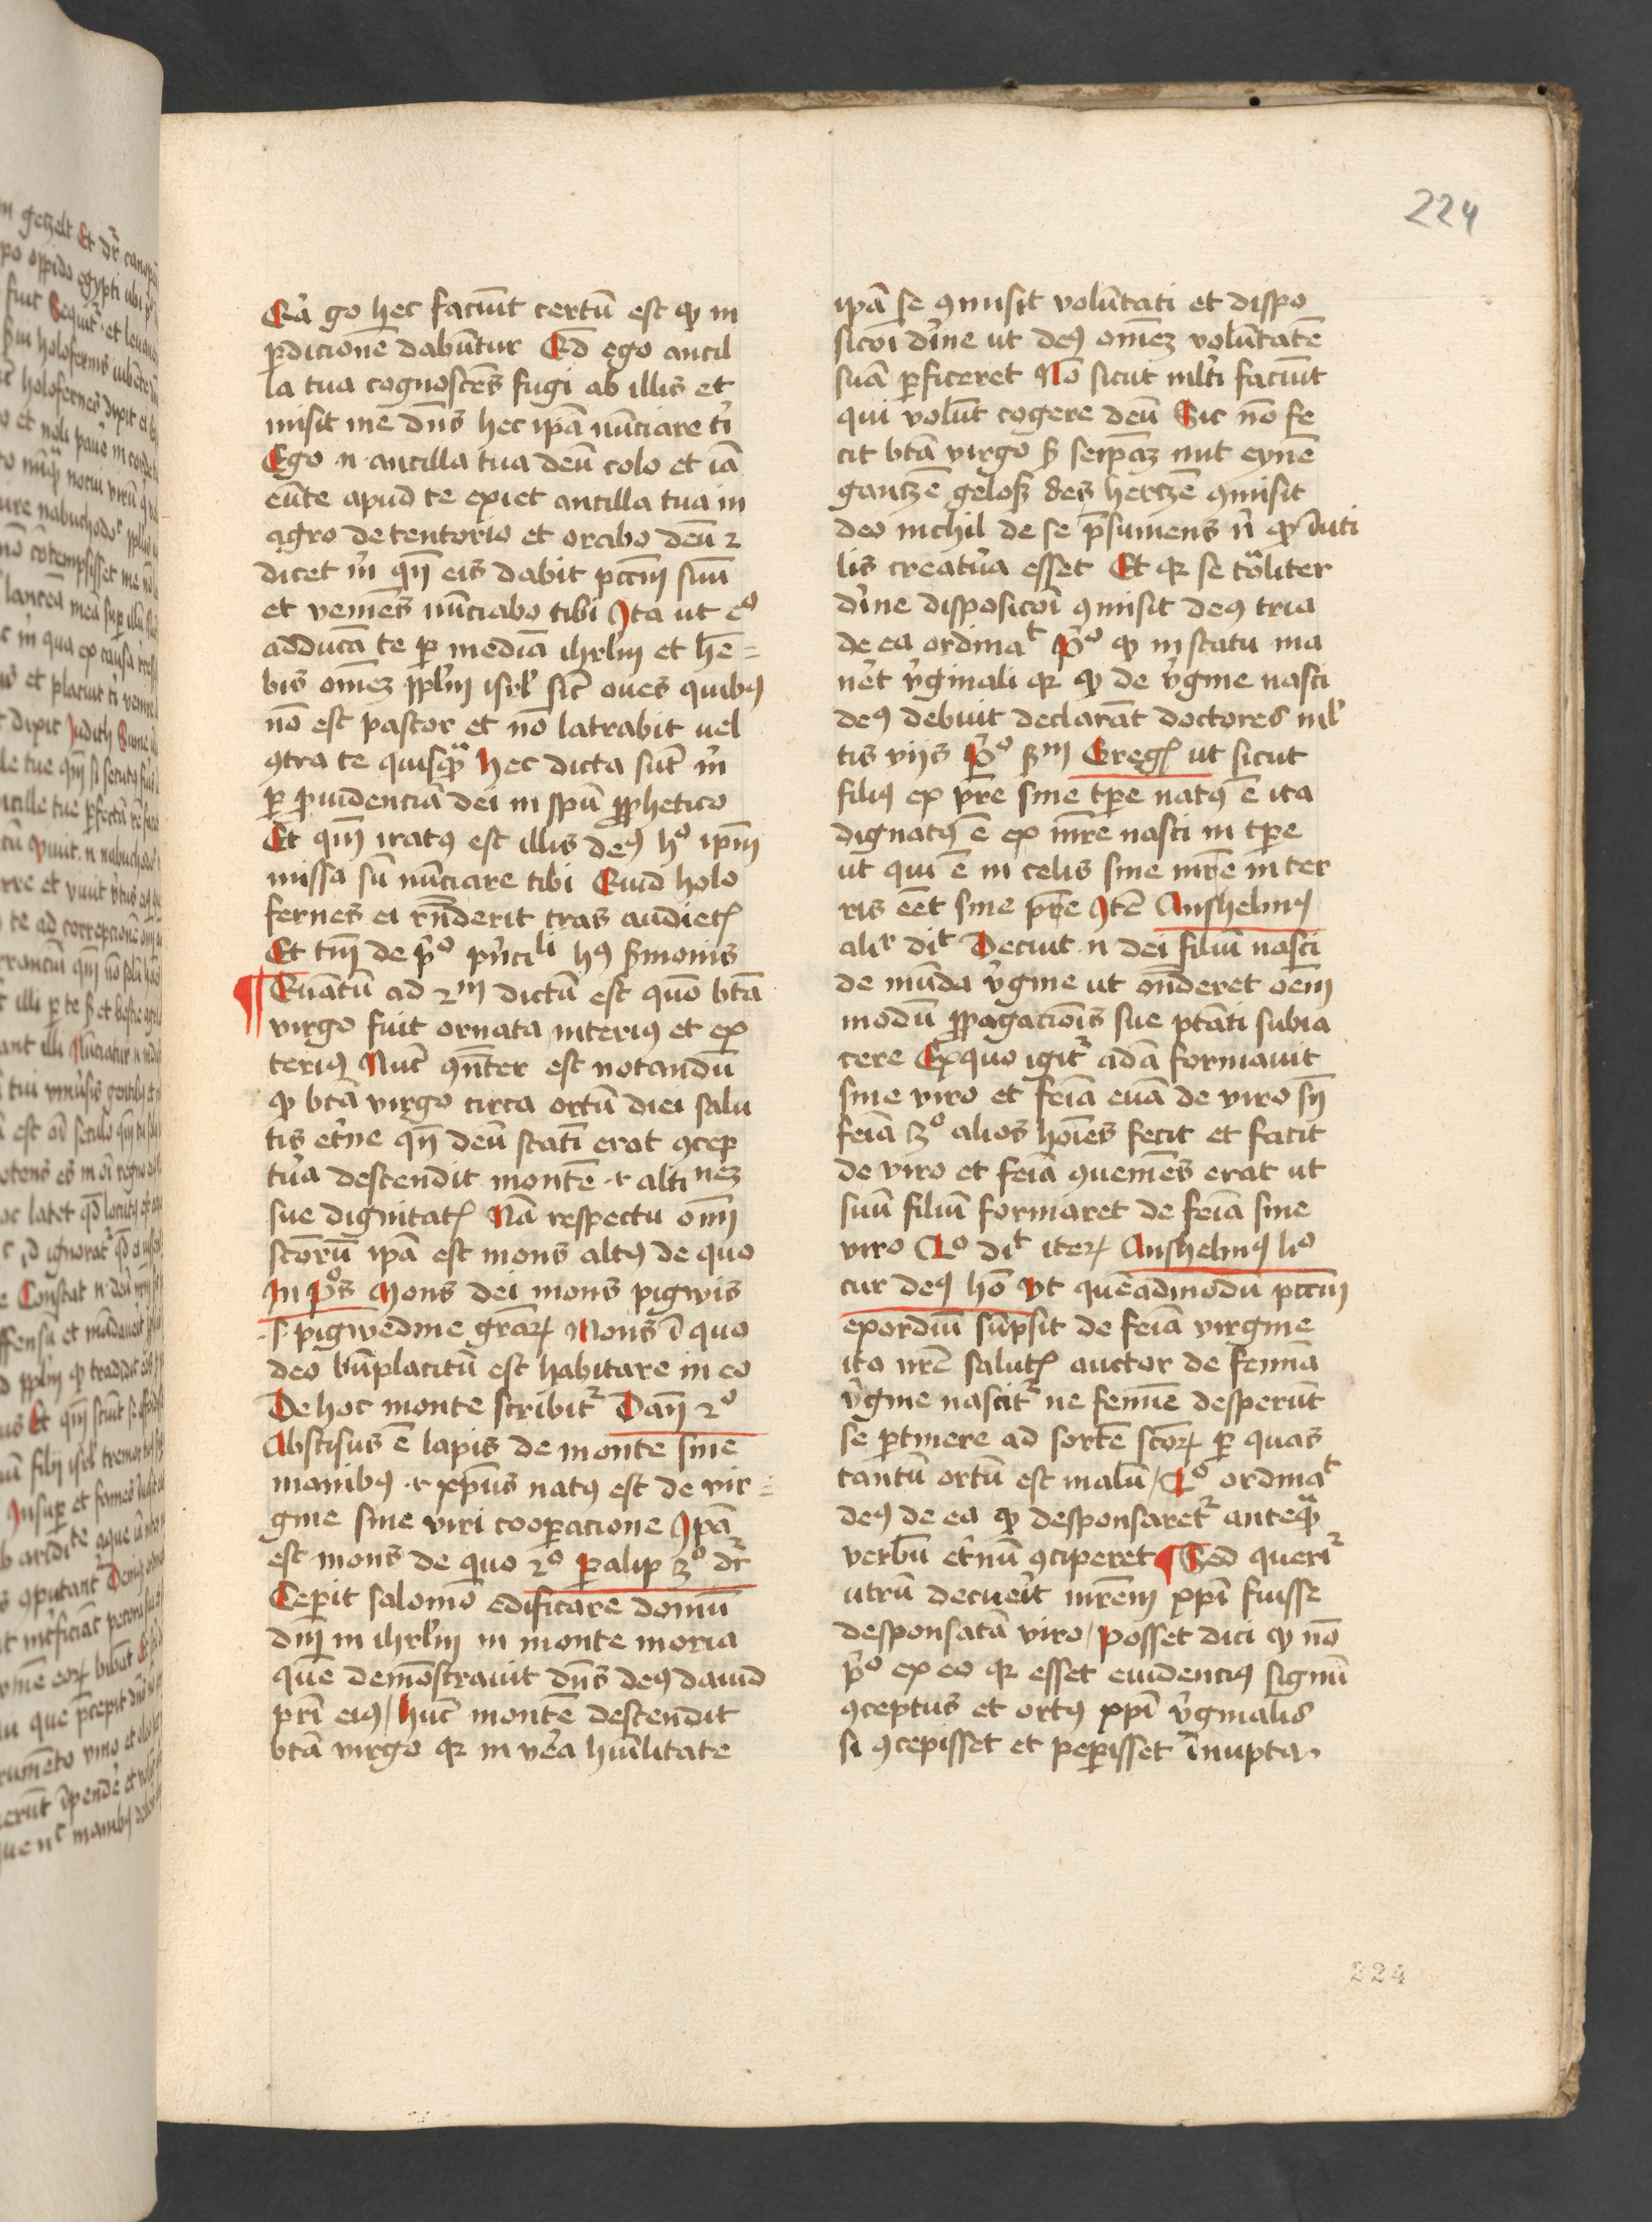 224
Qr̄ go hec faciūt certū est ꝙ in
ꝑdicionē dabūtur Qd̄ ego ancil
la tua cognoscēs fugi ab illis et
misit me dn̄s hec ipā nūciare t̄
Ego .n. ancilla tua deū colo et iā
eūte apud te exiet ancilla tua in
agro de tentorio et orabo deū ⁊
dicet m̄ qn̄ eis dabit pcc̄m suū
et veniēs nūciabo tibi Ita ut eº
adducā te ꝑ mediā ihrl̄m et hē=
bis omēꝫ ppl̄m isrl̄ sic̄ oues quibꝰ
nō est pastor et nō latrabit uel
ꝯtra te quisꝙᵃ Hec dicta sūt m̄
ꝑ ꝓuidenciā dei in spū ꝓphetico
Et qm̄ iratꝰ est illis deꝰ hº ipm̄
missa sū nūciare tibi Quid holo
fernes ei rn̄derit cras audietꝭ
Et tm̄ de pº pn̄ciˡⁱ hꝰ s̄monis
¶ Quātū ad 2ᵐ dictū est quō btā
virgo fuit ornata interiꝰ et ex
teriꝰ Nūc ꝯn̄ter est notandū
ꝙ btā virgo circa ortū diei salu
tis et̄ne qn̄ deū statī erat ꝯcep
tūa descendit montē .i. altineꝫ
sue dignitatꝭ Nā respectu om̄
sc̄orū ipā est mons altꝰ de quo
In pºs Mons dei mons pigwis
.s. pigwedine gr̄aꝝ Mons ī quo
deo bn̄placitū est habitare in eo
De hoc monte scribitʳ Dan̄ 2º
Abscisus ē lapis de monte sine
manibꝰ .i. xp̄us natꝰ est de vir=
gine sine viri cooꝑacione Ipā
est mons de quo 2º ꝑalip 3º dr̄
Cepit salomō edificare domū
dn̄i in ihrl̄m in monte moria
quē demōstrauit dn̄s deꝰ dauid
pr̄i eiꝰ / Hūc montē descendit
btā virgo qꝛ in v̄a hūilitate
ipā se ꝯmisit volūtati et dispo
sicōi dīne ut deꝰ omēꝫ volūtatē
suā ꝑficeret Nō sicut ml̄ti faciūt
qui volūt cogere deū Sic nō fe
cit btā virgo s̄ seip̄aꝫ mit eynē
gantzē geloß des hertzē ꝯmisit
deo nichil de se p̄sumens n̄ ꝙ īuti
lis creatūa esset Et qꝛ se tōliter
dīne disposicōi ꝯmisit deꝰ tria
de ea ordinaᵗ pº ꝙ in statu ma
n̄et v̄ginali qꝛ ꝙ de v̄gine nasci
deꝰ debuit declarāt doctores ml̄
tis viis pº sᵐ Gregꝭ ut sicut
filiꝰ ex p̄re sine tꝑe natꝰ ē ita
dignatꝰ ē ex mr̄e nasci in tꝑe
ut qui ē in celis sine mr̄e in ter
ris eēt sine pr̄e Itē Anshelmꝰ
aliʳ diᵗ Decuit .n. dei filiū nasci
de mūda v̄gine ut on̄deret oēm
modū ꝓpagacionis sue ptāti subia
cere Ex quo igitʳ adā formauit
sine viro et feīa euā de viro sn̄
feīa 3º alios hoīes fecit et facit
de viro et feīa ꝯueniēs erat ut
suū filiū formaret de feīa sine
viro 4º diᵗ iteꝝ Anshelmꝰ liº
cur deꝰ hō Vt quēadmodū pcc̄m
exordiū sūpsit de feīa virgine
ita nr̄e salutꝭ auctor de femīa
v̄gine nascitʳ ne femīe desperūt
se ꝑtinere ad sortē sc̄oꝝ ꝑ quas
tantū ortū est malū / 2º ordinaᵗ
deꝰ de ea ꝙ desponsaretʳ anteꝙᵃ
verbū et̄nū ꝯciperet ¶ Sed queriʳ
utrū decueīt mr̄em xp̄i fuisse
desponsatā viro / Posset dici ꝙ nō
pº ex eo qꝛ esset euidenciꝰ signū
ꝯceptus et ortꝰ xp̄i v̄ginalis
si ꝯcepisset et peperisset īnupta.
224